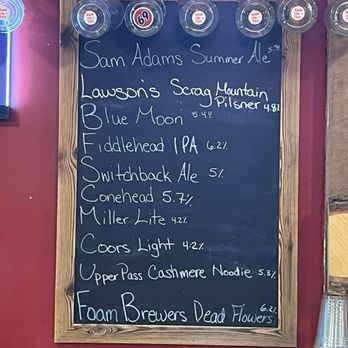 Sam Adams Summer Ale 5.3%
Lawson's Scrag Mountain
Pilsner 4.8%
Blue Moon 5.4%
Fiddlehead IPA 6.2%
Switchback Ale 5%
Conehead 5.7%
Miller Lite 4.2%
Coors Light 4.2%
Upper Pass Cashmere Noodie 5.3%
Foam Brewers Dead Flowers 6.2%